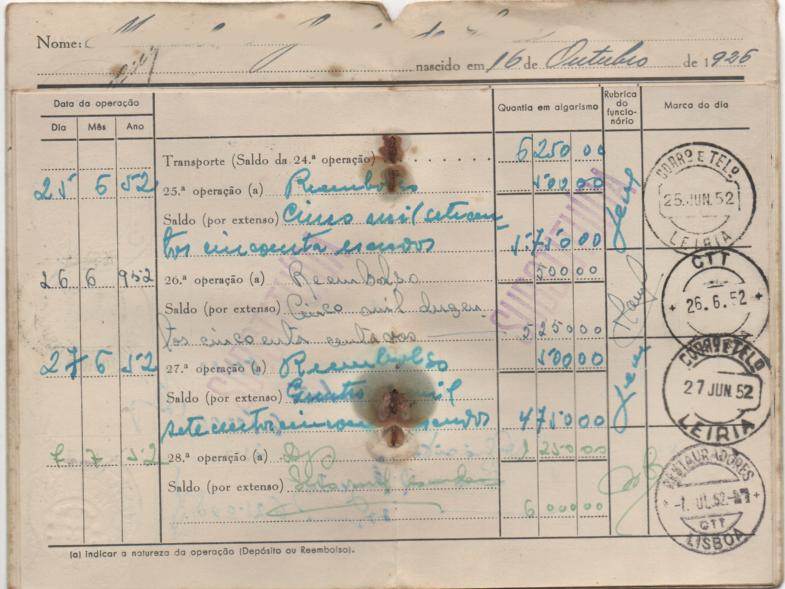 Nome:
nascido em 16 de Outubro de 1926
Data da operação
Quantia em algarismo
Rubrica do funcionário
Marca do dia
Dia Mês Ano
Transporte (Saldo da 24.ª operação) 6 250 00
25 6 52 25.ª operação (a) Reembolso 500 00
CORRº E TELº
25.JUN.52
LEIRIA
Saldo (por extenso) Cinco mil setecen-
tos cincoenta escudos 5 750 00
26 6 952 26.ª operação (a) Reembolso 500 00
CTT
26.6.52
Saldo (por extenso) Cinco mil duzen-
tos cincoenta 5 250 00
27 6 52 27.ª operação (a) Reembolso 500 00
CORRº E TELº
27 JUN.52
LEIRIA
Saldo (por extenso) mil
setecentos escudos 4 750 00
7 52 28.ª operação (a) 1 250 00
RESTAURADORES
CTT
LISBOA
Saldo (por extenso) 6 000 00
(a) Indicar a natureza da operação (Depósito ou Reembolso).